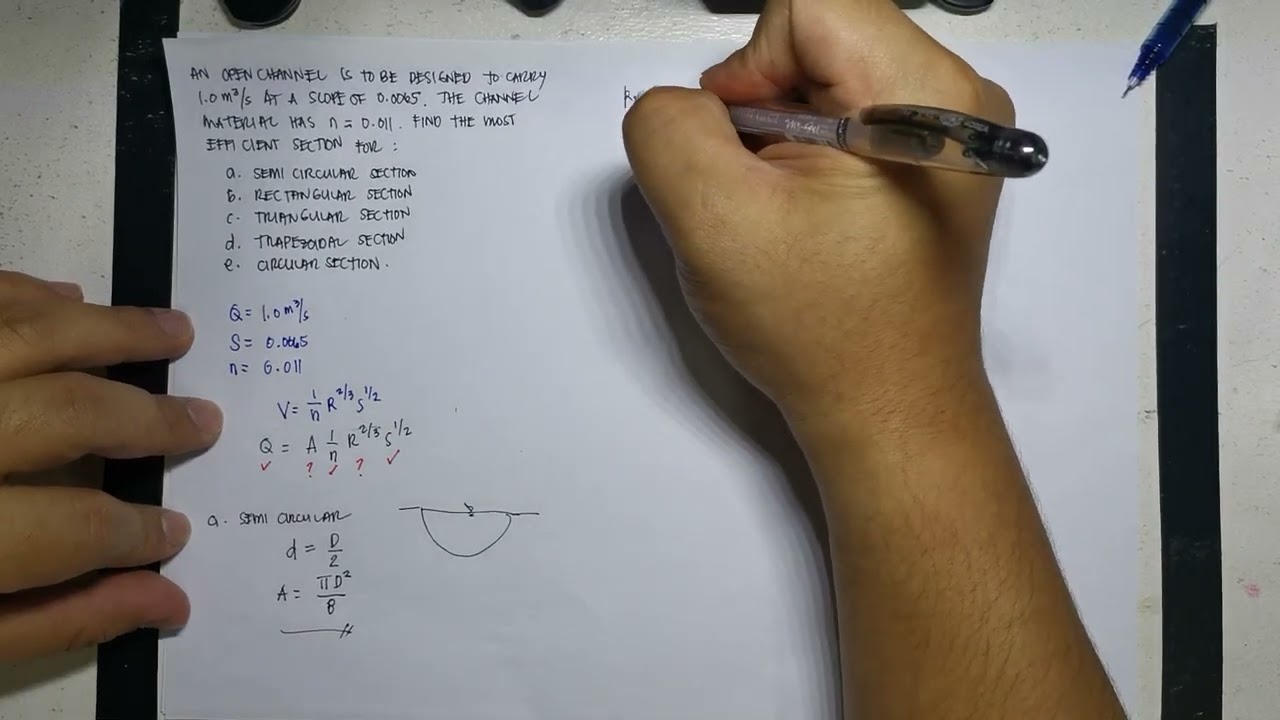 AN OPEN CHANNEL IS TO BE DESIGNED TO CARRY
1.0 m³/s AT A SLOPE OF 0.0065. THE CHANNEL
MATERIAL HAS n = 0.011. FIND THE MOST
EFFICIENT SECTION FOR :
a. SEMI CIRCULAR SECTION
b. RECTANGULAR SECTION
c. TRIANGULAR SECTION
d. TRAPEZOIDAL SECTION
e. CIRCULAR SECTION.
Q = 1.0 m³/s
S = 0.0065
n = 0.011
V = 1/n R^2/3 S^1/2
Q = A 1/n R^2/3 S^1/2
✓ ? ✓ ? ✓
a. SEMI CIRCULAR
d = D/2
A = πD²/8